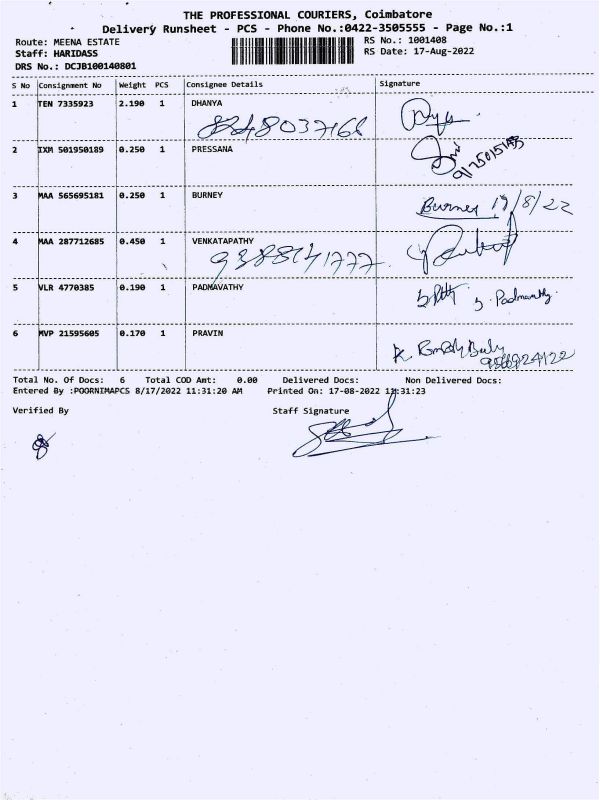 THE PROFESSIONAL COURIERS, Coimbatore
Delivery Runsheet - PCS - Phone No.:0422-3505555 - Page No.:1
Route: MEENA ESTATE RS No.: 1001408
Staff: HARIDASS RS Date: 17-Aug-2022
DRS No.: DCJB100140801
S No Consignment No Weight PCS Consignee Details Signature
1 TEN 7335923 2.190 1 DHANYA
2 IXM 501950189 0.250 1 PRESSANA
3 MAA 565695181 0.250 1 BURNEY Burney 17/8/22
4 MAA 287712685 0.450 1 VENKATAPATHY
5 VLR 4770385 0.190 1 PADMAVATHY
6 MVP 21595605 0.170 1 PRAVIN
Total No. Of Docs: 6 Total COD Amt: 0.00 Delivered Docs: Non Delivered Docs:
Entered By :POORNIMAPCS 8/17/2022 11:31:20 AM Printed On: 17-08-2022 11:31:23
Verified By Staff Signature